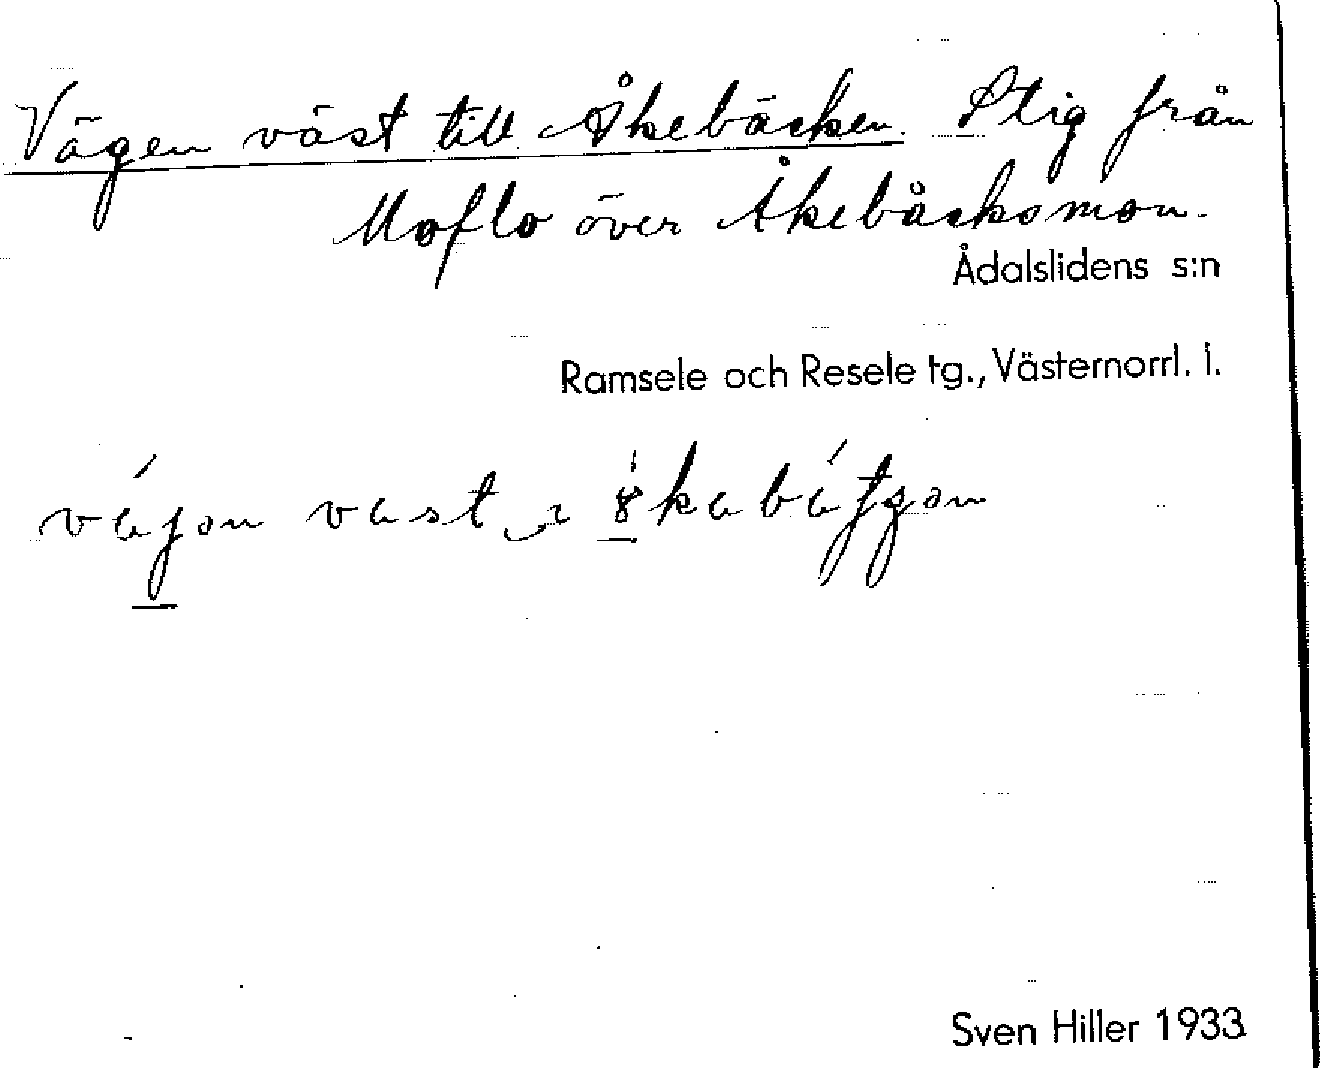 Vägen väst till Åkebäcken. Stig från
Moflo över Åkebäcksmon.
Ådalslidens s:n
Ramsele och Resele tg., Västernorrl. l.
Sven Hiller 1933